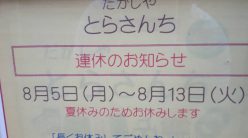 だがしや
とらさんち
連休のお知らせ
8月5日(月)～8月13日(火)
夏休みのためお休みします